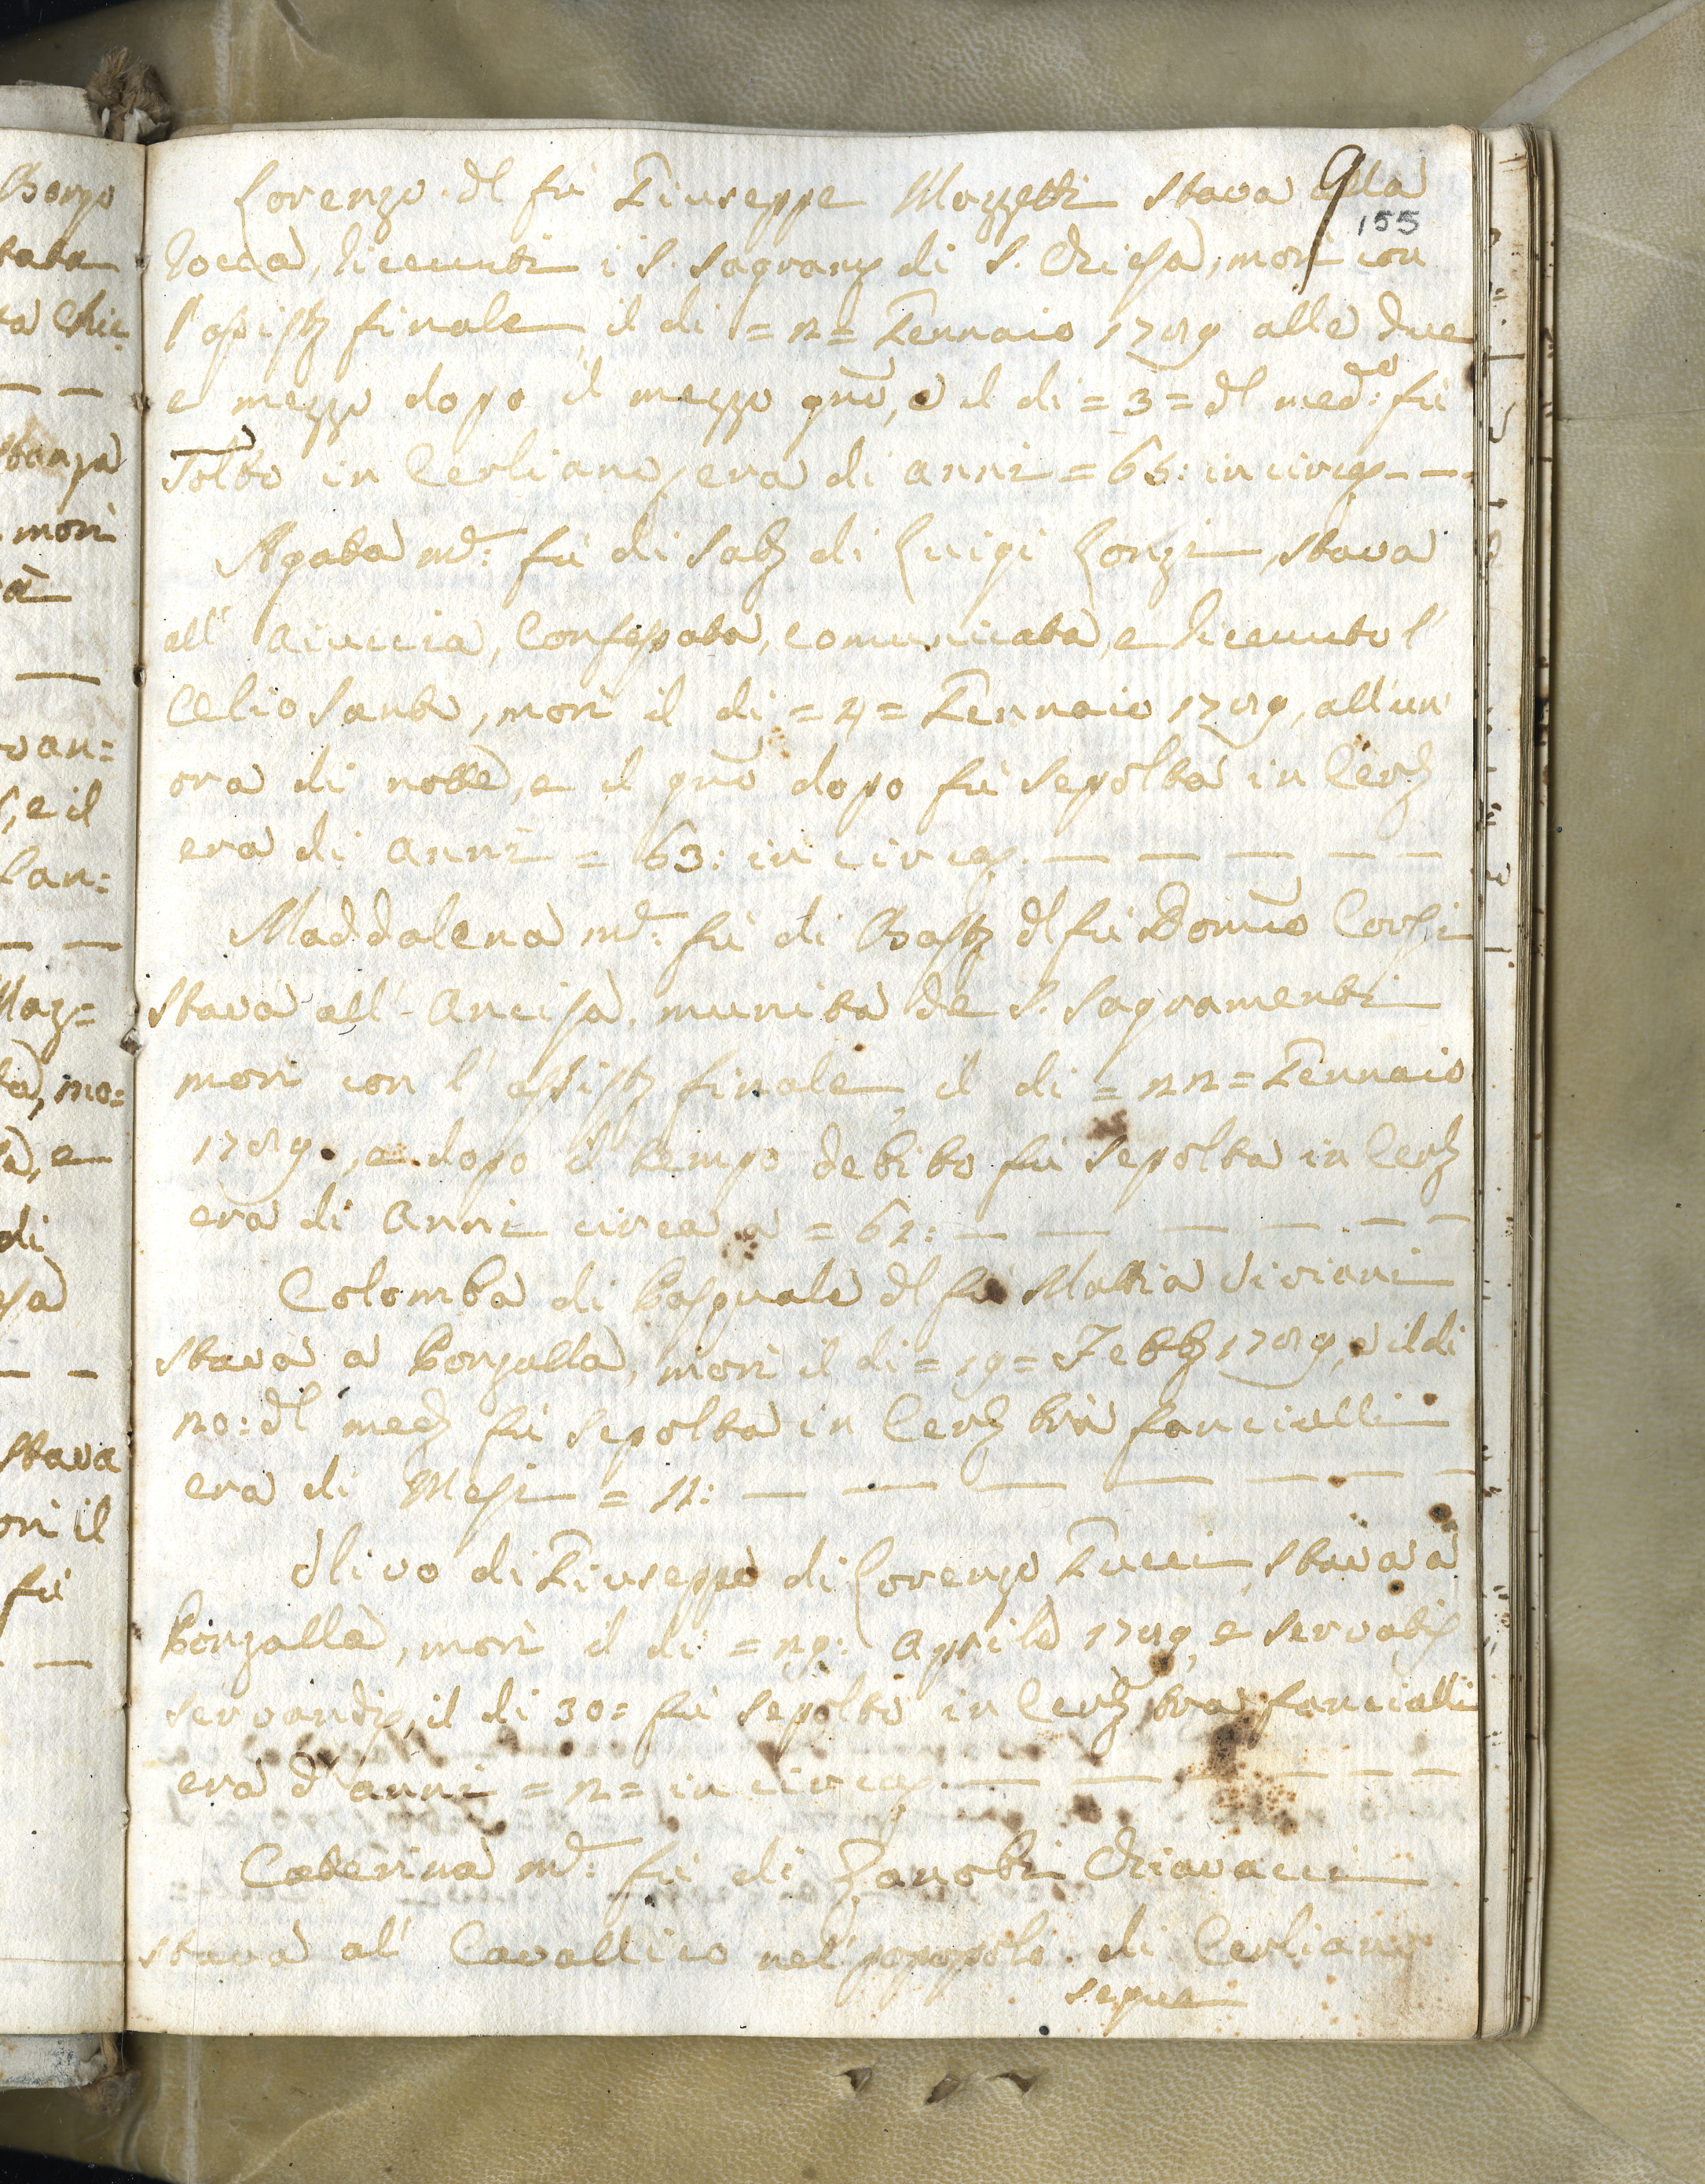 9
155
Lorenzo dl fù Giuseppe Mazzetti stava alla
Rocca, ricevuti i S. Sagram di S. Chiesa, morì con
l'assist finale, il dì = 2 = Gennaio 1789 alle due
e mezzo dopo il mezzo gno, e il dì = 3 = dl med:mo fù
Solto in Cerliano, era di anni = 65: in circa — —
Agata md: fù di Salv di Luigi Lonzi, stava
all' Aiuccia, Confessata, comunicata, e ricevuto l'
Olio Santo, morì il dì = 4 = Gennaio 1789, all'un
ora di notte, e il gno dopo fù sepolta in Cerl
era di anni = 63: in circa. — — — — —
Maddalena md: fù di Bast dl fù Domco Corsi
stava all'-Ancisa, munita de S. Sagramenti
morì con l'assist finale, il dì = 22 = Gennaio
1789., e dopo il tempo debito fù sepolta in Cerl
era di Anni circa a = 62: — — — — — —
Colomba di Pasquale dl fù Mattia Viviani
stava a Ponzalla, morì il dì = 19 = Febb 1789, e il dì
20: dl med fù sepolta in Cerl trà fanciulli
era di Mesi = 11: — — — — — — —
Olivo di Giuseppe di Lorenzo Tucci, stava a
Ponzalla, morì il dì = 29: Aprile 1789, e servatis
servandis, il dì 30 = fù sepolto in Cerl tra fanciulli
era d'anni = 2 = in circa. — — — — — —
Caterina md: fù di Zanobi Chiavacci
stava al' Cavallico nel' popopolo di Cerliano
segue
Borgo
morì
van=
, e il
Maz=
mo=
e
di
stava
il
fù